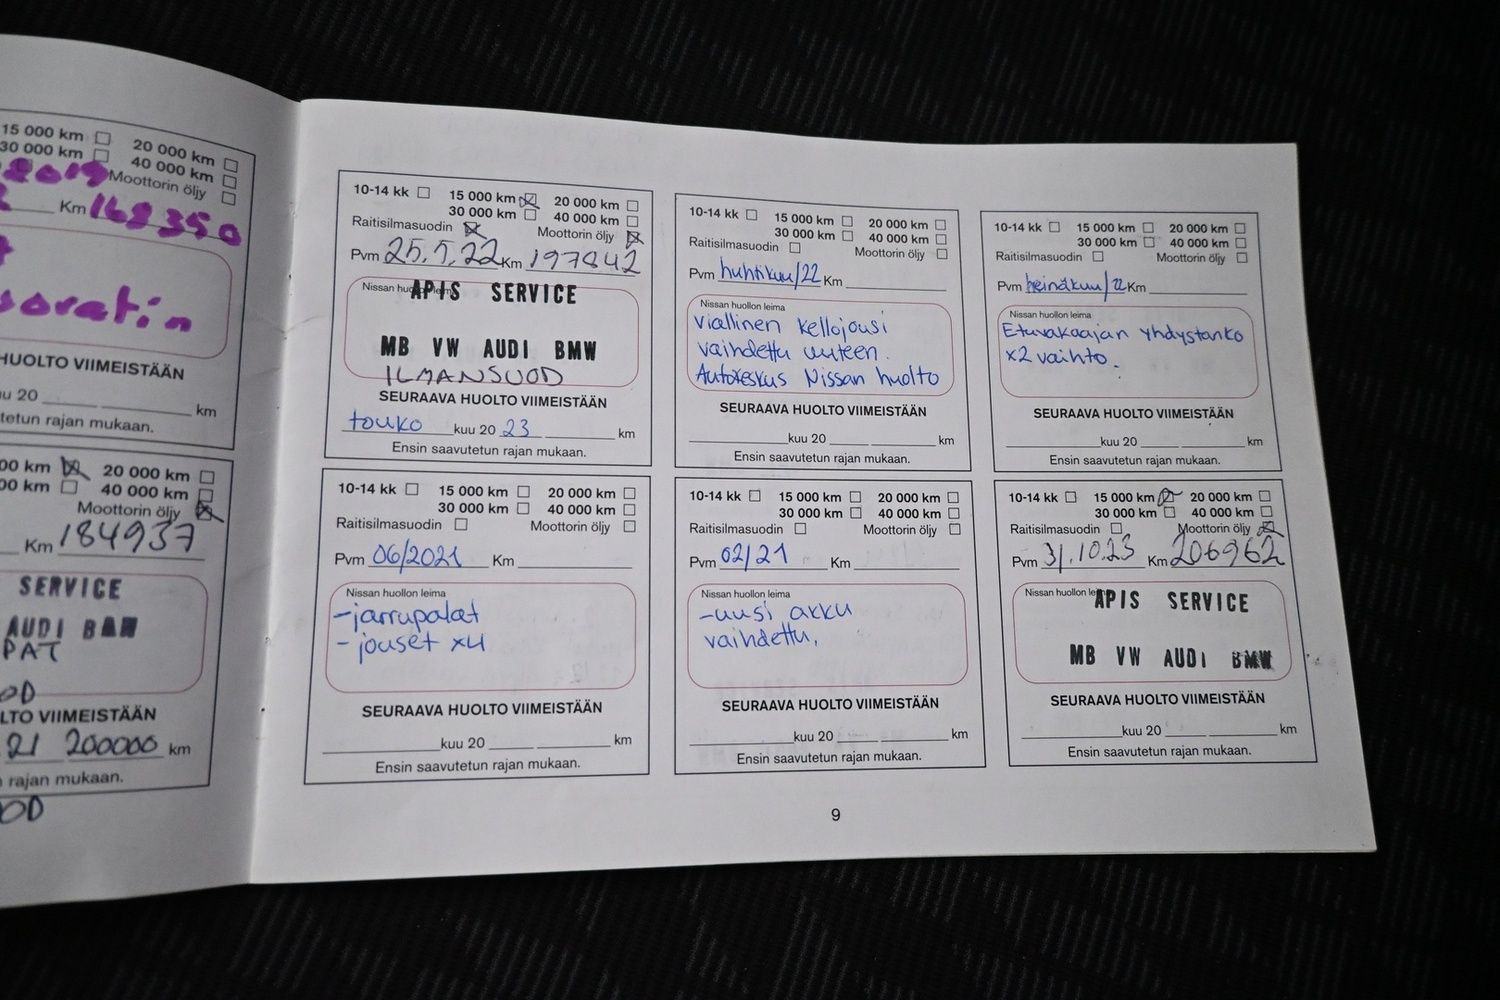 15 000 km 20 000 km
30 000 km 40 000 km
2019 Moottorin öljy
Km 168350
HUOLTO VIIMEISTÄÄN
20 km
rajan mukaan.
20 000 km
40 000 km
Moottorin öljy
Km 184937
SERVICE
AUDI BMW
VIIMEISTÄÄN
21 200000 km
rajan mukaan.
10-14 kk 15 000 km 20 000 km
30 000 km 40 000 km
Raitisilmasuodin Moottorin öljy
Pvm 25.5.22 Km 197842
Nissan huollon leima
APIS SERVICE
MB VW AUDI BMW
ILMANSUOD
SEURAAVA HUOLTO VIIMEISTÄÄN
touko kuu 20 23 km
Ensin saavutetun rajan mukaan.
10-14 kk 15 000 km 20 000 km
30 000 km 40 000 km
Raitisilmasuodin Moottorin öljy
Pvm huhtikuu/22 Km
Nissan huollon leima
Viallinen kellojousi
vaihdettu uuteen.
Autokeskus Nissan huolto
SEURAAVA HUOLTO VIIMEISTÄÄN
kuu 20 km
Ensin saavutetun rajan mukaan.
10-14 kk 15 000 km 20 000 km
30 000 km 40 000 km
Raitisilmasuodin Moottorin öljy
Pvm heinäkuu/22 Km
Nissan huollon leima
Etuvakaajan yhdystanko
x2 vaihto.
SEURAAVA HUOLTO VIIMEISTÄÄN
kuu 20 km
Ensin saavutetun rajan mukaan.
10-14 kk 15 000 km 20 000 km
30 000 km 40 000 km
Raitisilmasuodin Moottorin öljy
Pvm 06/2021 Km
Nissan huollon leima
-jarrupalat
- jouset x4
SEURAAVA HUOLTO VIIMEISTÄÄN
kuu 20 km
Ensin saavutetun rajan mukaan.
10-14 kk 15 000 km 20 000 km
30 000 km 40 000 km
Raitisilmasuodin Moottorin öljy
Pvm 02/21 Km
Nissan huollon leima
-uusi akku
vaihdettu.
SEURAAVA HUOLTO VIIMEISTÄÄN
kuu 20 km
Ensin saavutetun rajan mukaan.
10-14 kk 15 000 km 20 000 km
30 000 km 40 000 km
Raitisilmasuodin Moottorin öljy
Pvm 31.10.23 Km 206962
Nissan huollon leima
APIS SERVICE
MB VW AUDI BMW
SEURAAVA HUOLTO VIIMEISTÄÄN
kuu 20 km
Ensin saavutetun rajan mukaan.
9